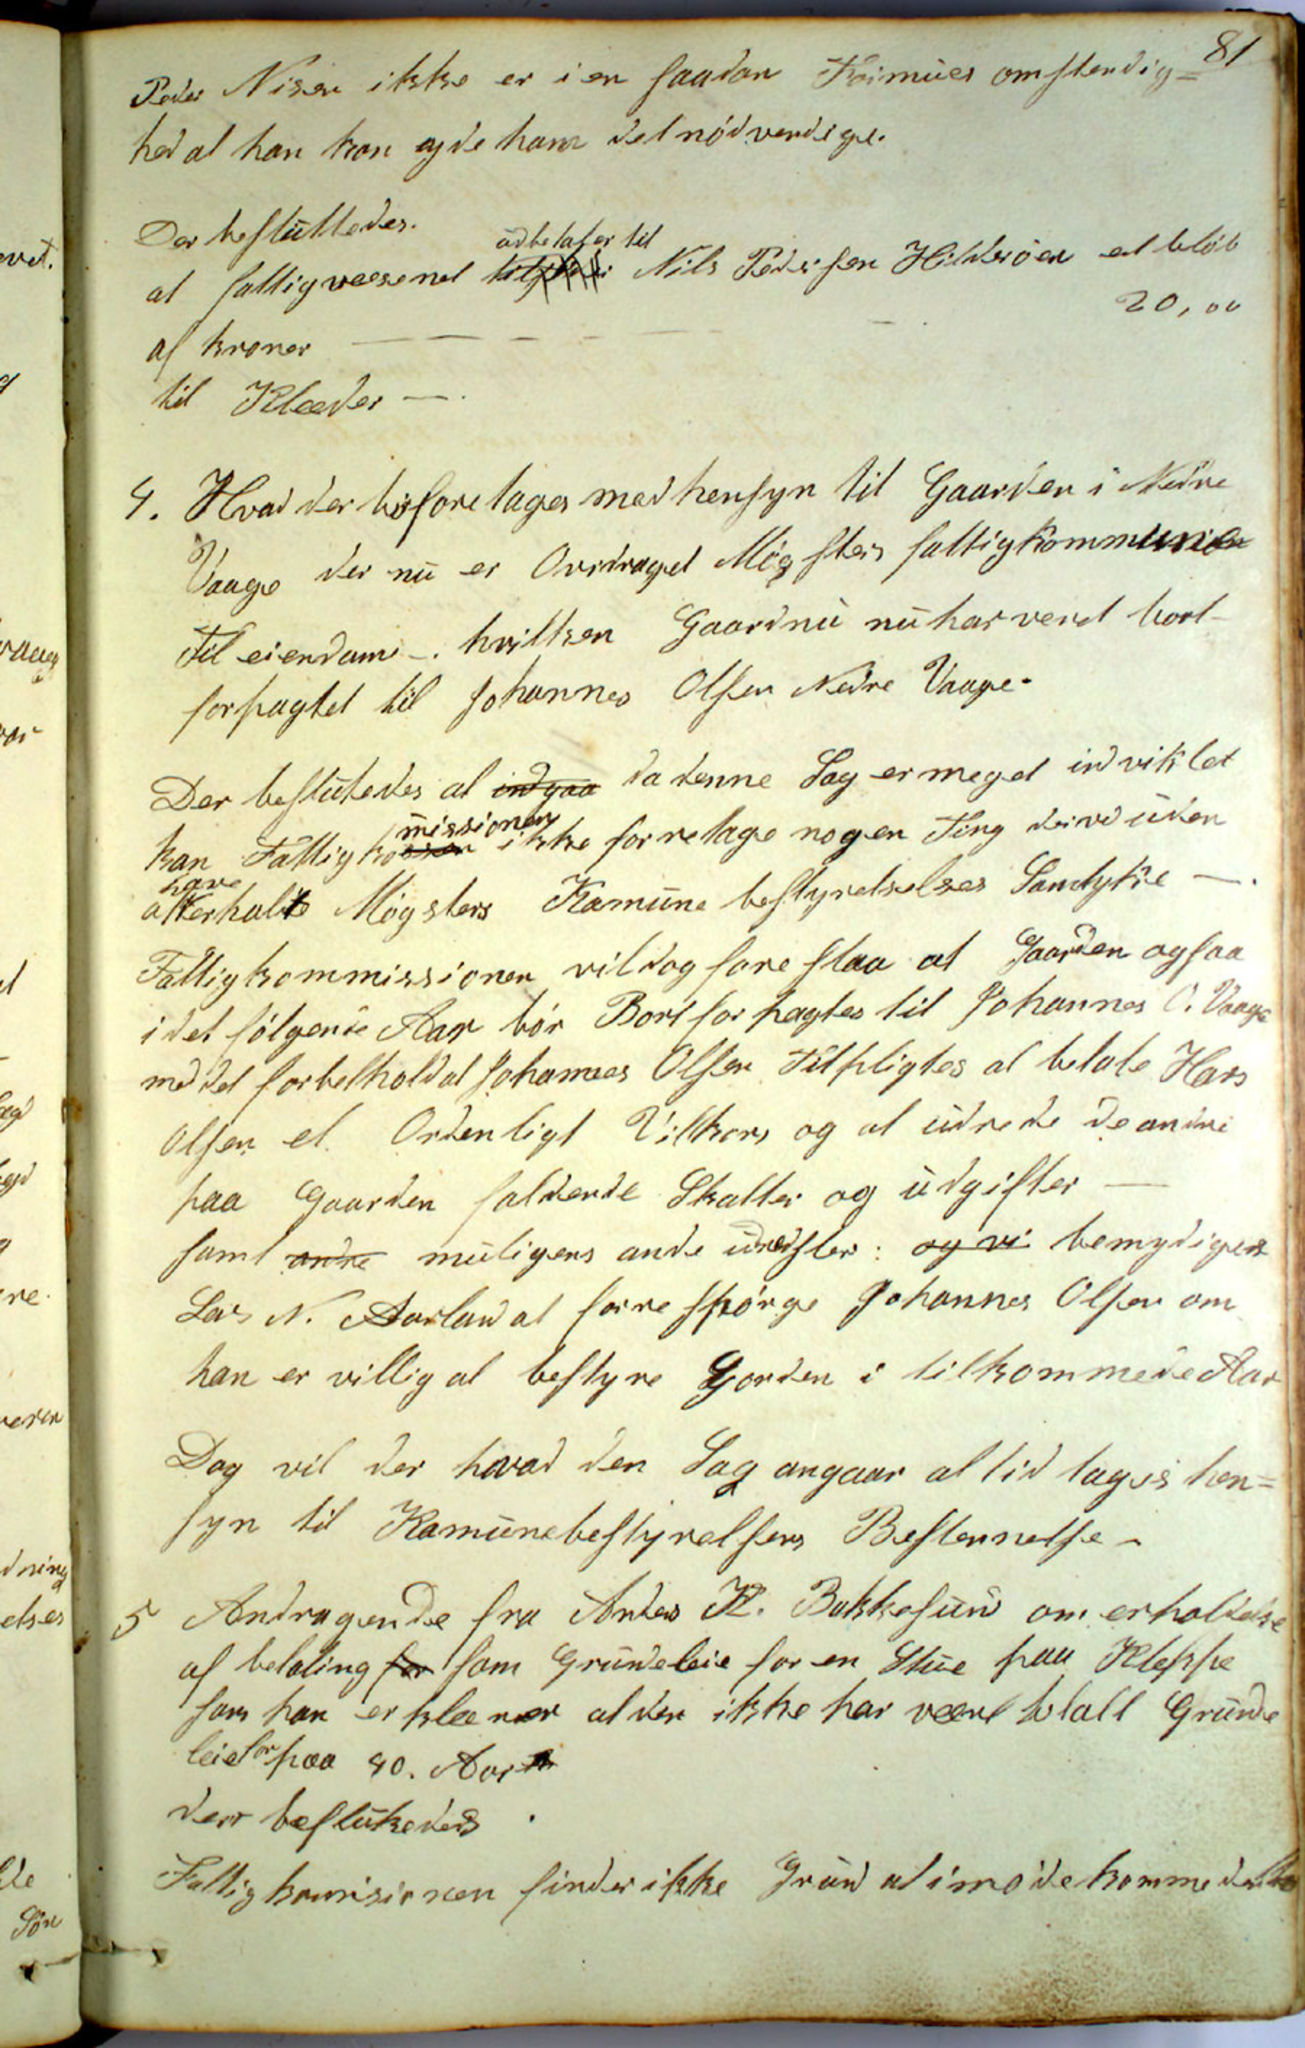 81
Peder Nisen ikke er i en saadan Formues omstendig=
hed at han kan yde ham det nødvendige.
Der besluttedes.
udbetaler til
at fattigvæsenet Nils Pedersen Hildersøen et beløb
af kroner — — — — — — 20,00
til Klæder —.
4. Hvad der bør foretages med hensyn til Gaarden i Nedre
Vaage der nu er Overdraget Møgsters fattigkommune
Til eiendom -. hvilken Gaard nu nu har veret bort-
forpagtet til Johannes Olsen Nedre Vaage.
Der beslutedes at indgaa da denne Sag er meget indviklet
missionen
kan Fattigko ikke forretage nogen Ting dervd uden
have
at erholde Møgsters Kamune bestyrelselses Samtykke —.
Fattigkommissionen vil dog fore slaa at Gaarden ogsaa
i det følgende Aar bør Bortforpagtes til Johannes O. Vaage
med det forbehold at Johannes Olsen Tilpligtes at betale Hans
Olsen et Ordenligt Vilkors og at udrede de andre
paa Gaarden faldende Skatter og udgifter —
samt andre muligens ande udredsler: og vi bemydiges
Lars N. Aarland at forre spørge Johannes Olsen om
han er villig at bestyre Gorden i tilkommede Aar
Dog vil der hvad den Sag angaar altid tages hen=
syn til Kamunebestyrelsens Bestemmelse -
5 Andragende fra Anders K. Bakkesund om erholdelse
af betaling for som Grundeleie for en Stue paa Kleppe
som han erklærer at der ikke har været betalt Grunde
leie for paa 40. Aar
derr beslutedes .
Fattigkomisionen finder ikke Grund at imødekomme dette